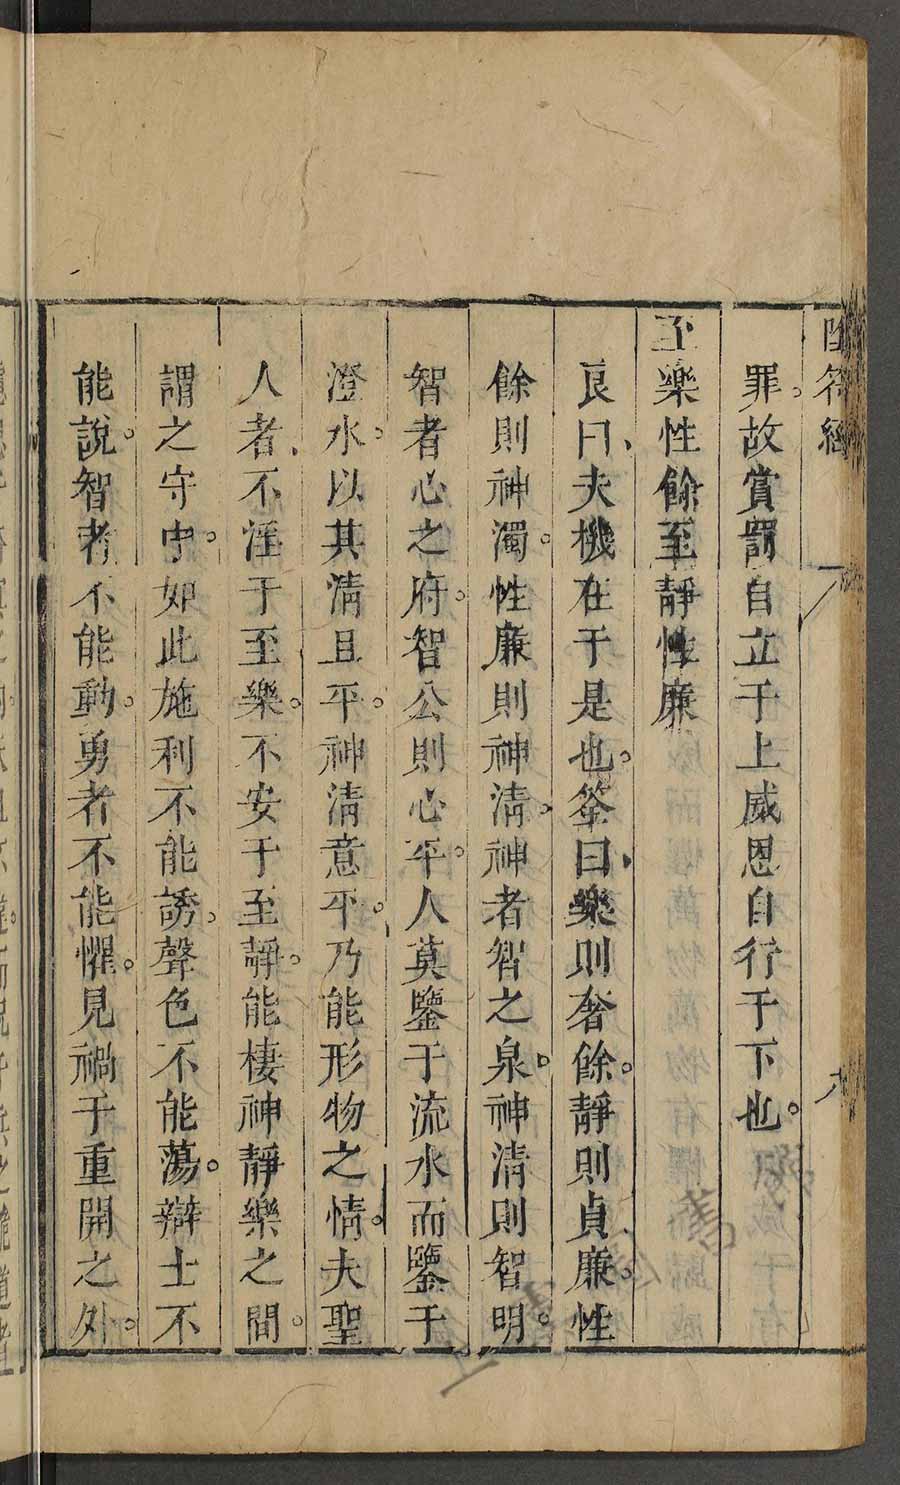 陰符經
罪故賞罰自立于上威恩自行于下也
至樂性餘至靜性廉
良曰夫機在于是也筌曰樂則奢餘靜則貞廉性
餘則神濁性廉則神清神者智之泉神清則智明
智者心之府智公則心平人莫鑒于流水而鑒于
澄水以其清且平神清意平乃能形物之情夫聖
人者不淫于至樂不安于至靜能棲神靜樂之間
謂之守中如此施利不能誘聲色不能蕩辯士不
能說智者不能動勇者不能懼見禍于重開之外